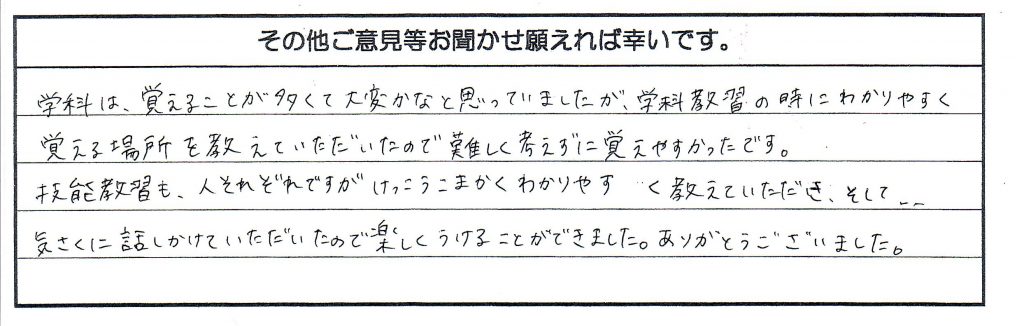 その他ご意見等お聞かせ願えれば幸いです。
学科は、覚えることが多くて大変かなと思っていましたが、学科教習の時にわかりやすく
覚える場所を教えていただいたので難しく考えずに覚えやすかったです。
技能教習も、人それぞれですがけっこうこまかくわかりやすく教えていただき、そして
気さくに話しかけていただいたので楽しくうけることができました。ありがとうございました。